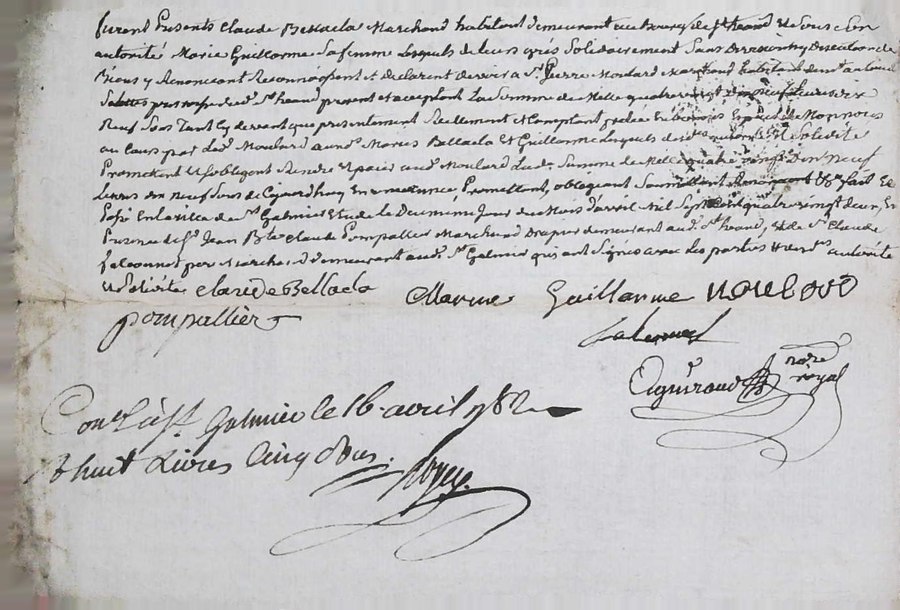 furent Presents Claude Bellacla Marchand habitant demeurant au bourg de st heand Et de Sous Son
autorité Marie Guillarme Sa femme Lesquels de leurs grés Solidairement Sans Division Ny Discution de
Biens y Renonceant Reconnoissent et declarent devoir a Sr Pierre Moulard Marchand habitant demt au lieu de
présent et acceptant La Somme de Mille quatre vingt dix neuf livres dix
Neuf Sous Tant Cy devant que presentement Réellement et Comptant En bonnes Espèces de Monnoies
au Cours par led. Moulard auxd. Mariés Bellacla Et Guillarme Lesquels de autorité Et Solidité
Promettent et Sobligent Rendre Et paier aud. Moulard Lad. Somme de Mille quatre vingt Dix Neuf
Livres dix neuf Sous de Cejourdhuy En une année Promettant, obligeant Soumettant Renonceant &c fait Et
Passé En la ville de st Galmier Etude Le Deuxieme Jour du Mois d'avril Mil Sept Cent quatre vingt deux, En
Presence de Sr Jean Bte Claude Pompallier Marchand Drapier demeurant aud. St heand, Et de Sr Claude
falconnet Marchand demeurant aud. St Galmier qui ont Signés avec Les parties autorité
Et Solidité Claude Bellacla Marie Guillarme Moulard
pompallier
Aguiraud notre royal
Conlé à St Galmier le 16 avril 1782
R huit Livres Cinq Sous.